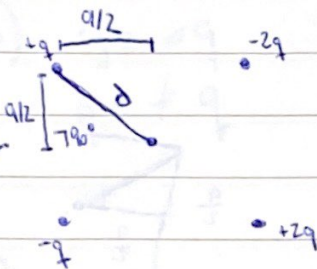 a/2
+q -2q
a/2 d
90°
-q +2q